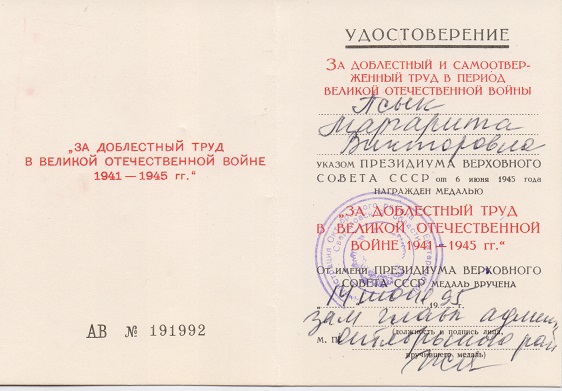 „ЗА ДОБЛЕСТНЫЙ ТРУД
В ВЕЛИКОЙ ОТЕЧЕСТВЕННОЙ ВОЙНЕ
1941—1945 гг.“
АВ № 191992
УДОСТОВЕРЕНИЕ
ЗА ДОБЛЕСТНЫЙ И САМООТВЕР-
ЖЕННЫЙ ТРУД В ПЕРИОД
ВЕЛИКОЙ ОТЕЧЕСТВЕННОЙ ВОЙНЫ
Псык
Маргарита
Викторовна
УКАЗОМ ПРЕЗИДИУМА ВЕРХОВНОГО
СОВЕТА СССР от 6 июня 1945 года
НАГРАЖДЕН МЕДАЛЬЮ
„ЗА ДОБЛЕСТНЫЙ ТРУД
В ВЕЛИКОЙ ОТЕЧЕСТВЕННОЙ
ВОЙНЕ 1941—1945 гг.“
ОТ ИМЕНИ ПРЕЗИДИУМА ВЕРХОВНОГО
СОВЕТА СССР МЕДАЛЬ ВРУЧЕНА
95
зам главы админ
(должность и подпись лица,
М. П. Октябрьского рай
вручившего медаль)